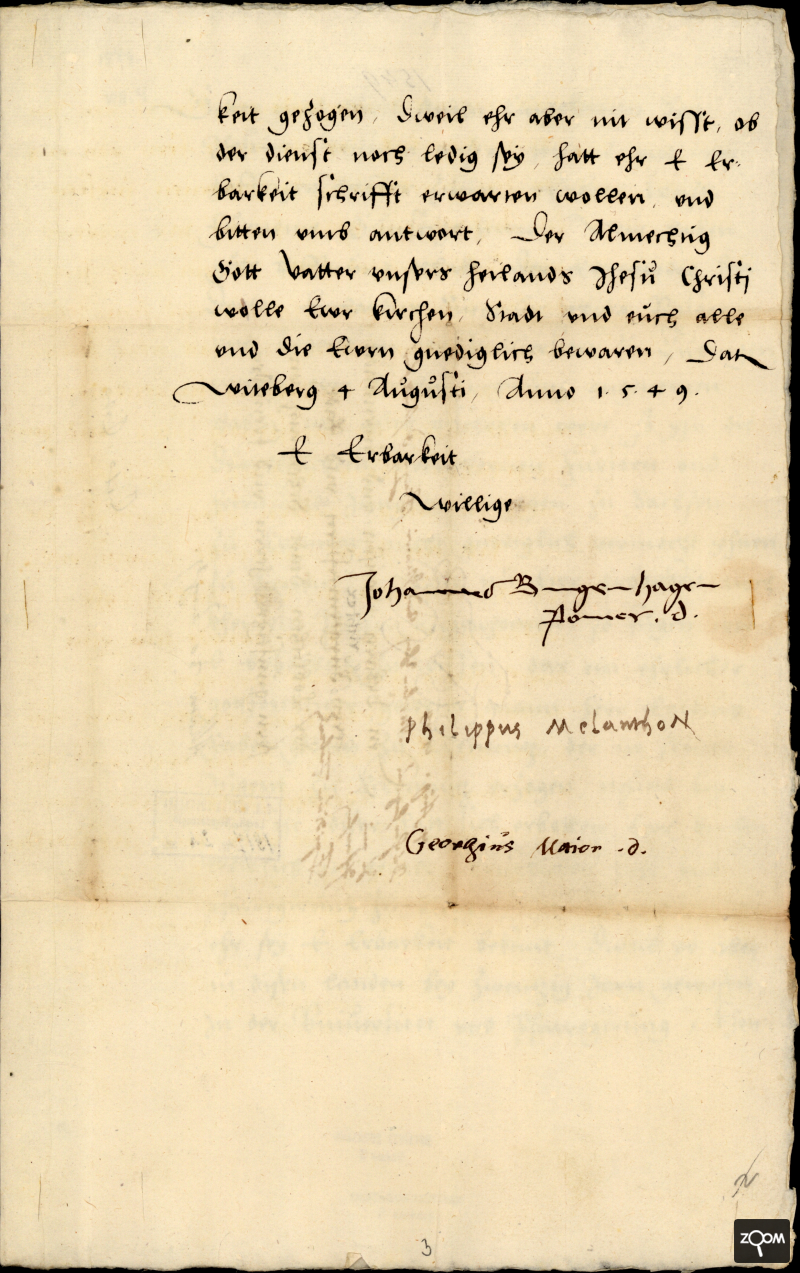 keit gezogen, dweil ehr aber nit wisst, ob
der dienst noch ledig sey, hatt ehr E Er-
barkeit schrifft erwarten wollen, vnd
bitten vmb antwort, Der Almechtig
Gott Vatter vnsers heilands Jhesu Christi
wolle Ewr kirchen, Stadt vnd euch alle
vnd die Ewrn gnediglich bewaren, Dat
Witeberg 4 Augusti, Anno 1.5.4.9.
E Erbarkeit
Willige
Johannes Bugenhagen
Pomer. d.
Philippus MelanthoN
Georgius Maior .d.
3
ZOOM